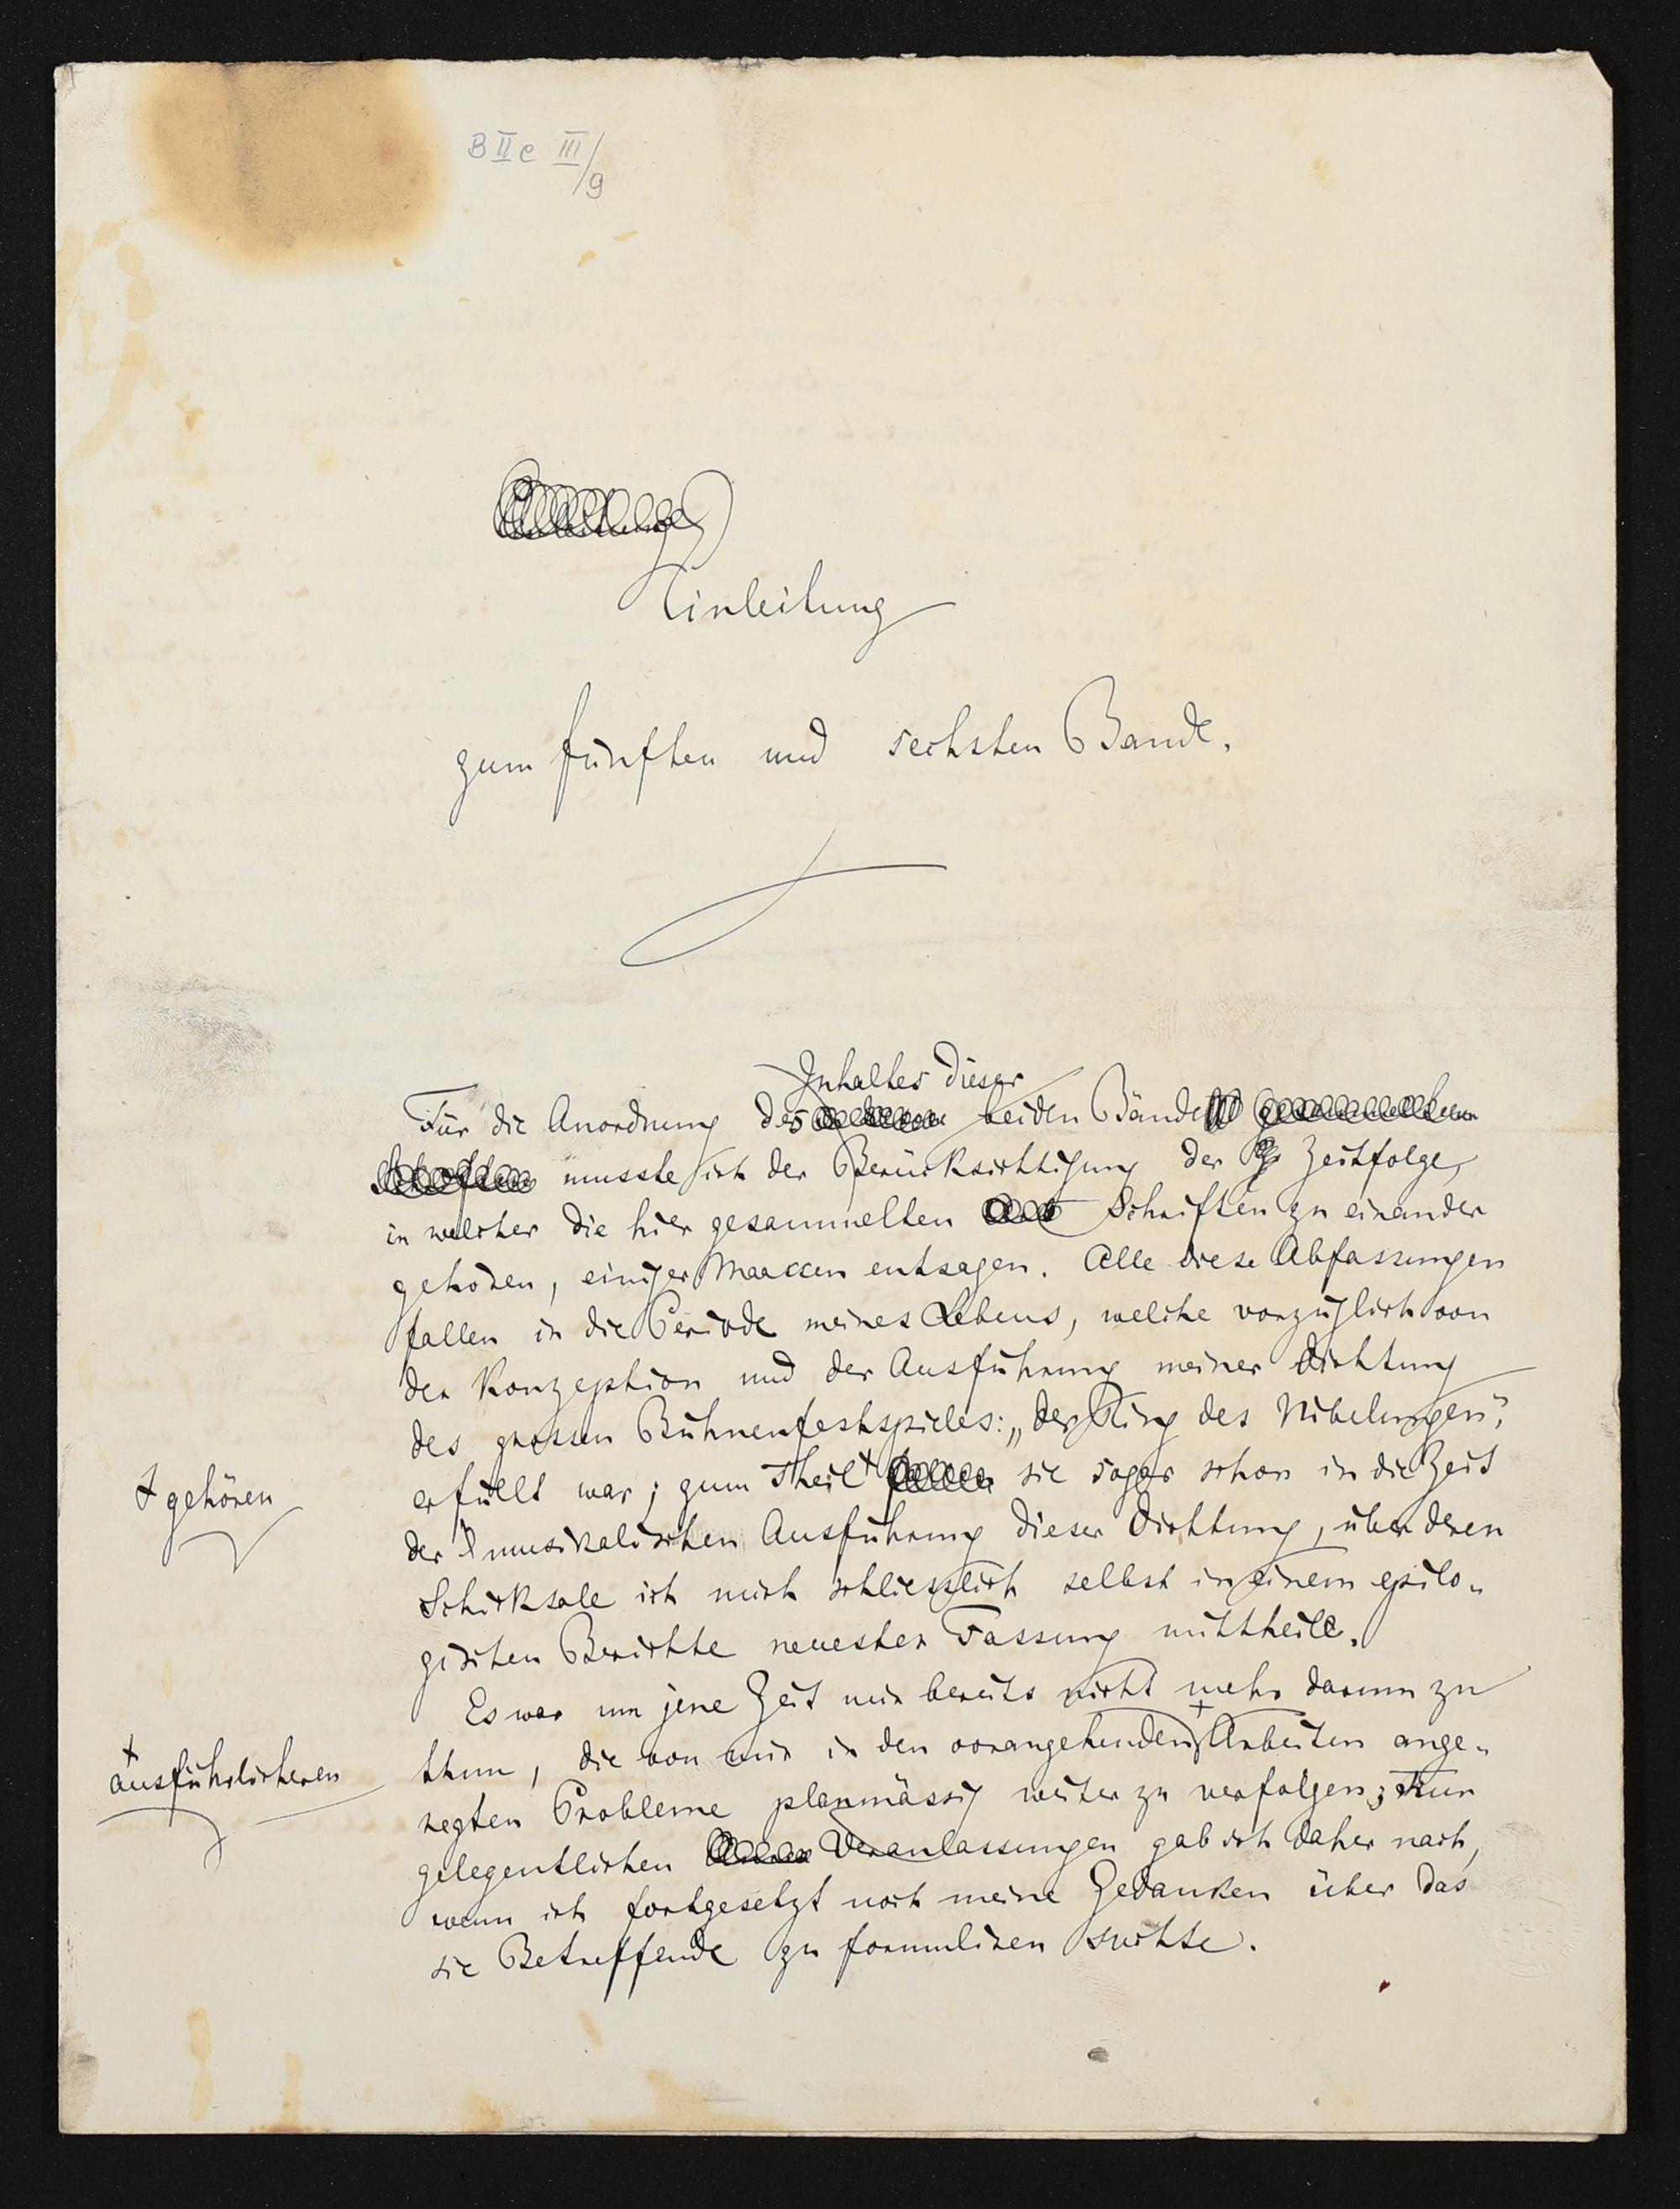 B II c III/9
Einleitung
zum fünften und sechsten Bande.
Inhaltes dieser
Für die Anordnung des beiden Bände
musste ich der Berücksichtigung der Zeitfolge,
in welcher die hier gesammelten Schriften zu einander
gehören, einiger Maassen entsagen. Alle diese Abfassungen
fallen in die Periode meines Lebens, welche vorzüglich von
der Konzeption und der Ausführung meiner Dichtung
des grossen Bühnenfestspieles: „der Ring des Nibelungen",
erfüllt war; zum Theil + sie sogar schon in die Zeit
+ gehören
der musikalischen Ausführung dieser Dichtung, über deren
Schicksale ich mich schliesslich selbst in einem epilo-
gischen Berichte neuester Fassung mittheile.
Es war um jene Zeit mir bereits nicht mehr darum zu
thun, die von mir in den vorangehenden + Arbeiten ange-
+ ausführlicheren
regten Probleme planmässig weiter zu verfolgen; Nur
gelegentlichen Veranlassungen gab ich daher nach,
wenn ich fortgesetzt noch meine Gedanken über das
sie Betreffende zu formuliren suchte.